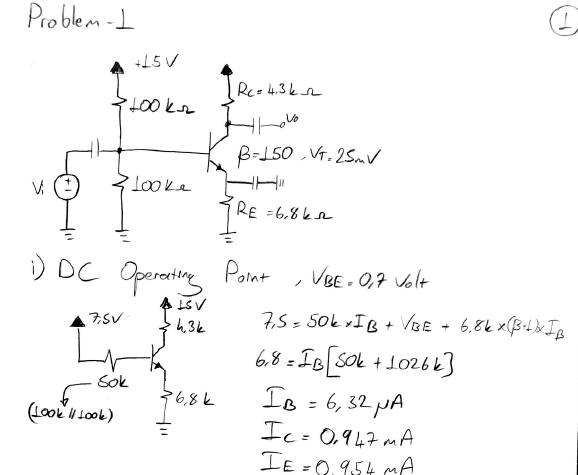 Problem-1
1
+15V
100kΩ
RC=4.3kΩ
Vo
β=150, VT=25mV
Vi
+
-
100kΩ
RE=6.8kΩ
i) DC Operating Point, VBE=0,7 Volt
7,5V
15V
4,3k
50k
(100k//100k)
6,8k
7,5=50k×IB+VBE+6,8k×(β+1)×IB
6.8=IB[50k+1026k]
IB=6,32μA
IC=0,947mA
IE=0,954mA